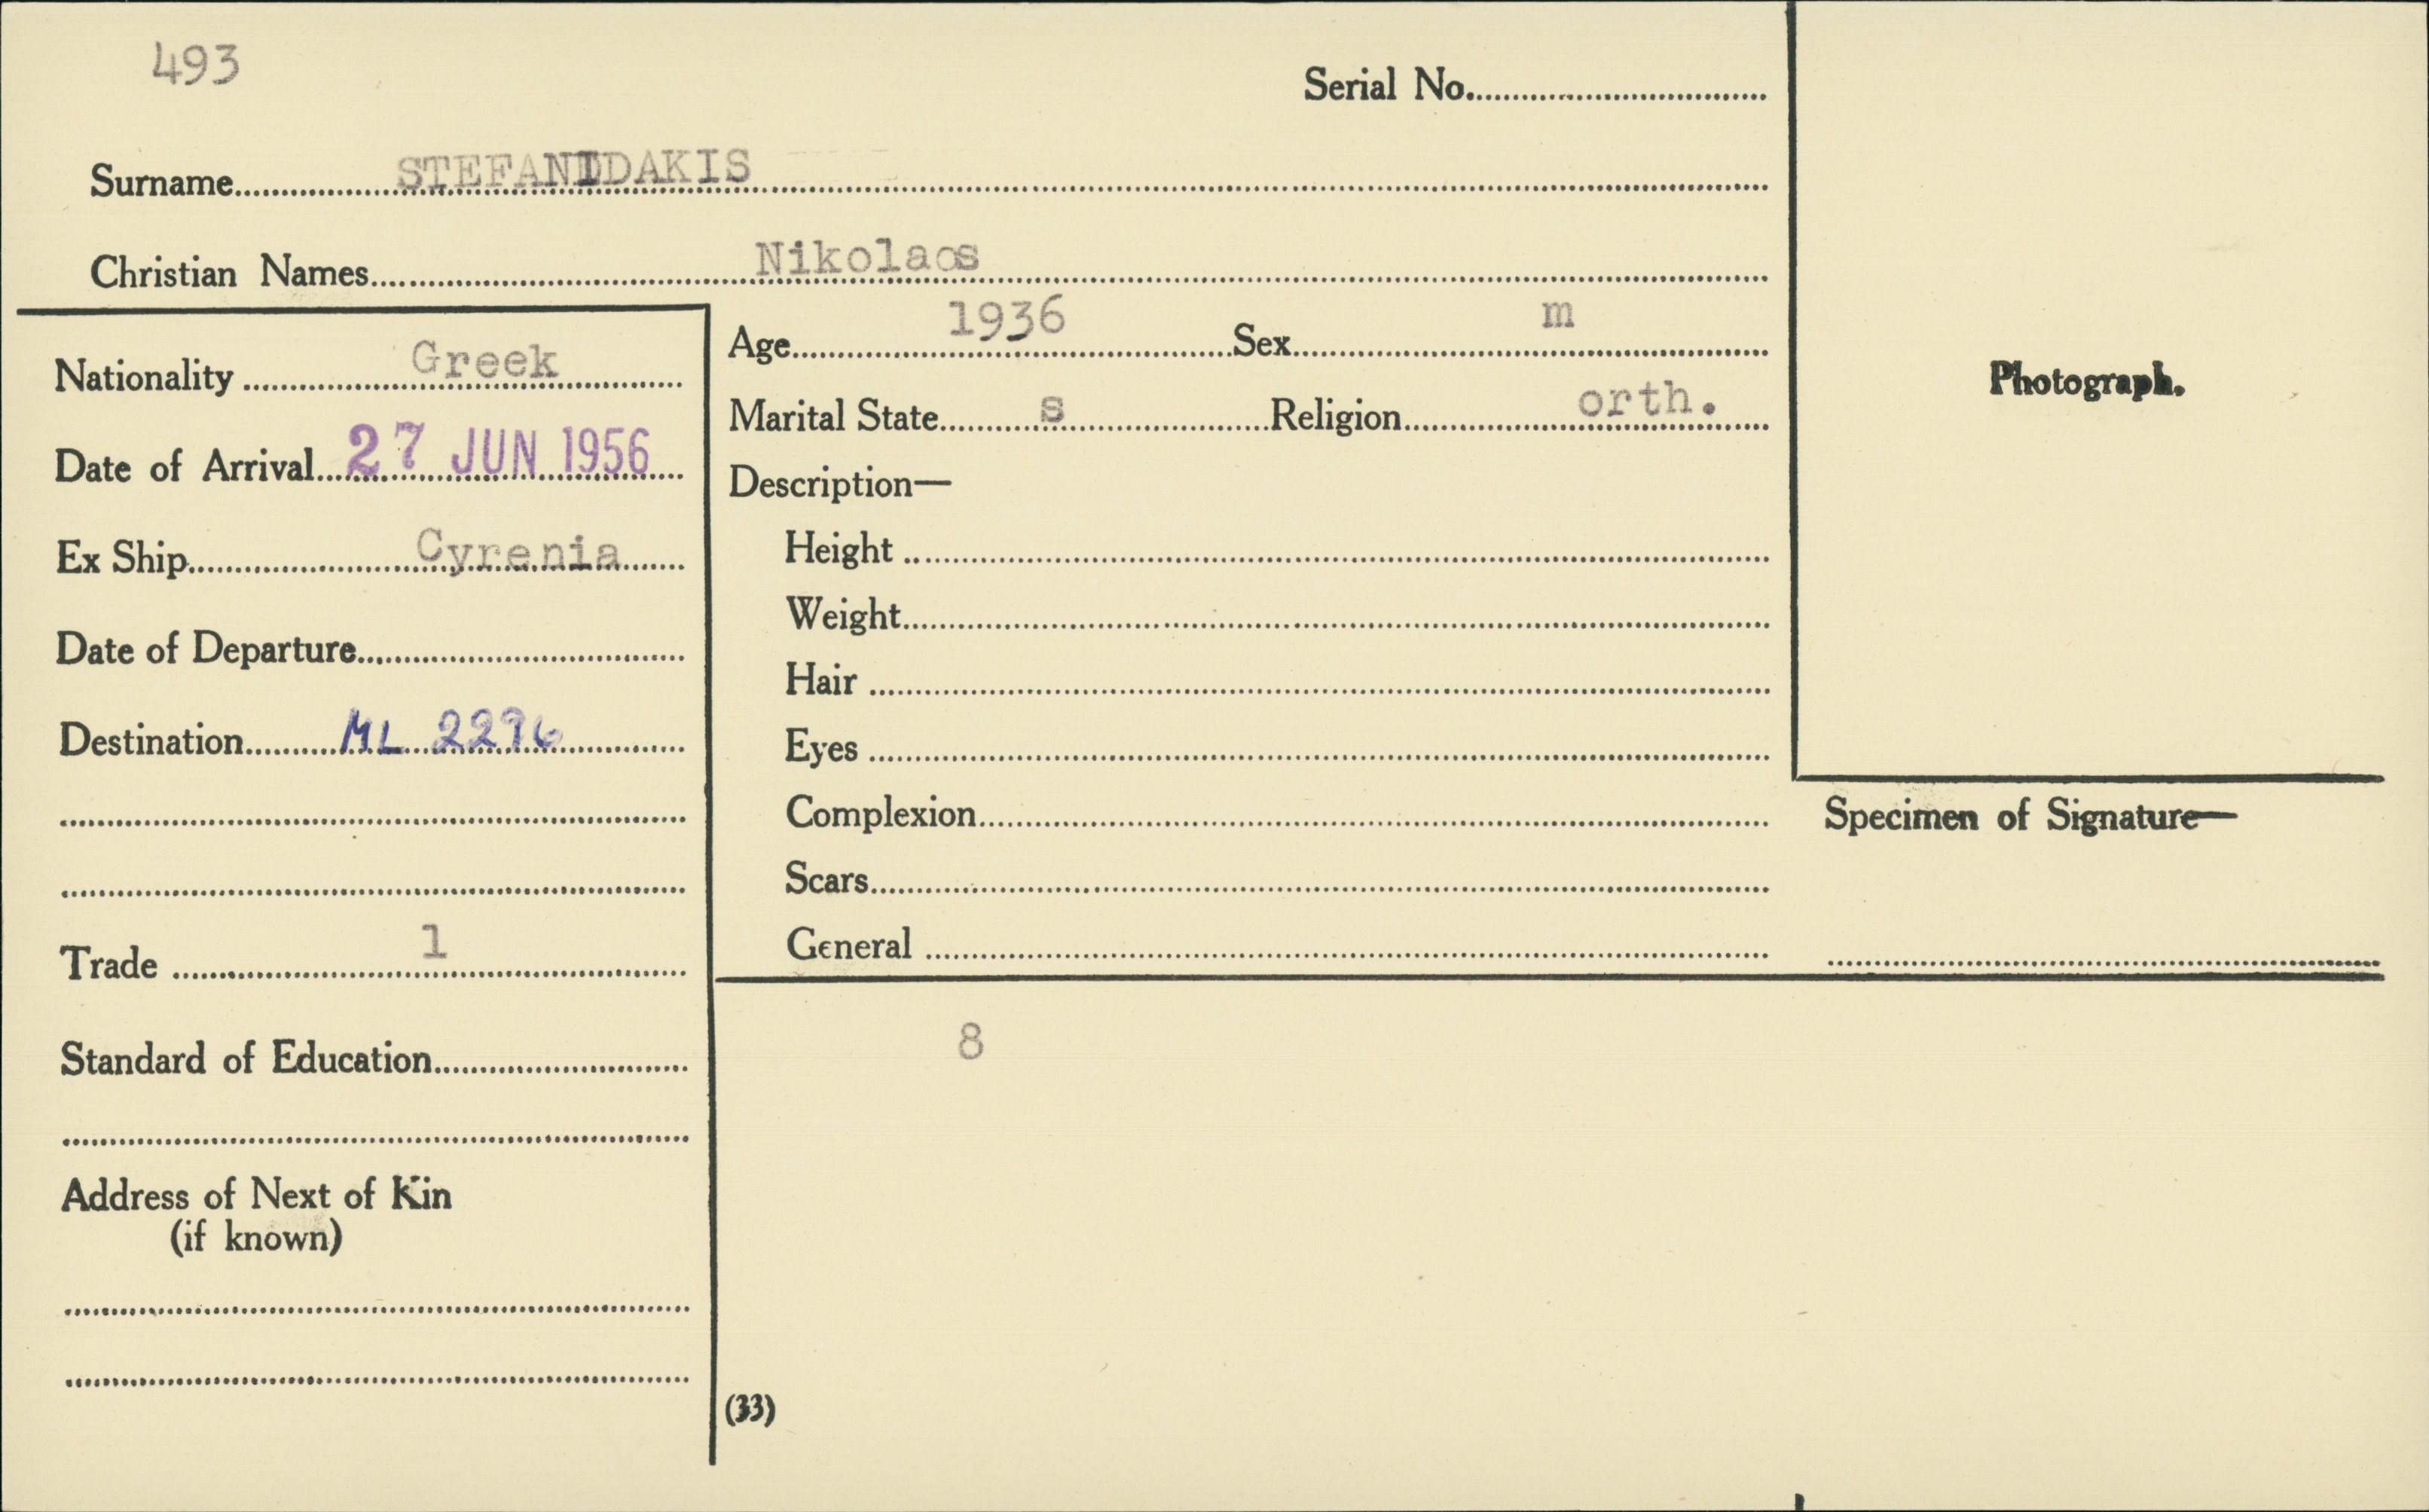 493
Serial No.
Surname STEFANIDAKIS
Christian Names Nikolaos
Nationality Greek
Date of Arrival 27 JUN 1956
Ex Ship Cyrenia
Date of Departure
Destination ML 2296
Trade 1
Standard of Education
Address of Next of Kin
(if known)
Age 1936 Sex m
Marital State s Religion orth.
Description—
Height
Weight
Hair
Eyes
Complexion
Scars
General
8
(33)
Photograph.
Specimen of Signature—